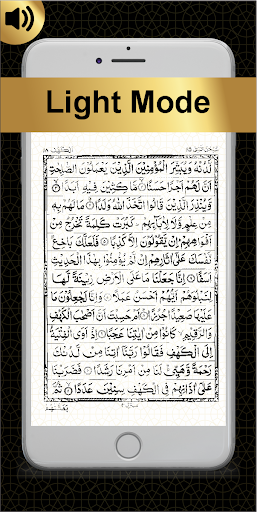 Light Mode
سُبْحٰنَ الَّذِىْ ١٥ الْكَهْف ١٨
لَّدُنْهُ وَيُبَشِّرَ الْمُؤْمِنِيْنَ الَّذِيْنَ يَعْمَلُوْنَ الصّٰلِحٰتِ
اَنَّ لَهُمْ اَجْرًا حَسَنًا ۙ﴿۲﴾ مَّاكِثِيْنَ فِيْهِ اَبَدًا ۙ﴿۳﴾
وَّيُنْذِرَ الَّذِيْنَ قَالُوا اتَّخَذَ اللّٰهُ وَلَدًا ﴿۴﴾ مَا لَهُمْ بِهٖ
مِنْ عِلْمٍ وَّلَا لِاٰبَآئِهِمْ ؕ كَبُرَتْ كَلِمَةً تَخْرُجُ مِنْ
اَفْوَاهِهِمْ ؕ اِنْ يَّقُوْلُوْنَ اِلَّا كَذِبًا ﴿۵﴾ فَلَعَلَّكَ بَاخِعٌ
نَّفْسَكَ عَلٰٓى اٰثَارِهِمْ اِنْ لَّمْ يُؤْمِنُوْا بِهٰذَا الْحَدِيْثِ
اَسَفًا ﴿۶﴾ اِنَّا جَعَلْنَا مَا عَلَى الْاَرْضِ زِيْنَةً لَّهَا
لِنَبْلُوَهُمْ اَيُّهُمْ اَحْسَنُ عَمَلًا ﴿۷﴾ وَاِنَّا لَجٰعِلُوْنَ مَا
عَلَيْهَا صَعِيْدًا جُرُزًا ﴿۸﴾ اَمْ حَسِبْتَ اَنَّ اَصْحٰبَ الْكَهْفِ
وَالرَّقِيْمِ كَانُوْا مِنْ اٰيٰتِنَا عَجَبًا ﴿۹﴾ اِذْ اَوَى الْفِتْيَةُ
اِلَى الْكَهْفِ فَقَالُوْا رَبَّنَآ اٰتِنَا مِنْ لَّدُنْكَ
رَحْمَةً وَّهَيِّئْ لَنَا مِنْ اَمْرِنَا رَشَدًا ﴿۱۰﴾ فَضَرَبْنَا
عَلٰٓى اٰذَانِهِمْ فِى الْكَهْفِ سِنِيْنَ عَدَدًا ﴿۱۱﴾ ثُمَّ
بَعَثْنٰهُمْ